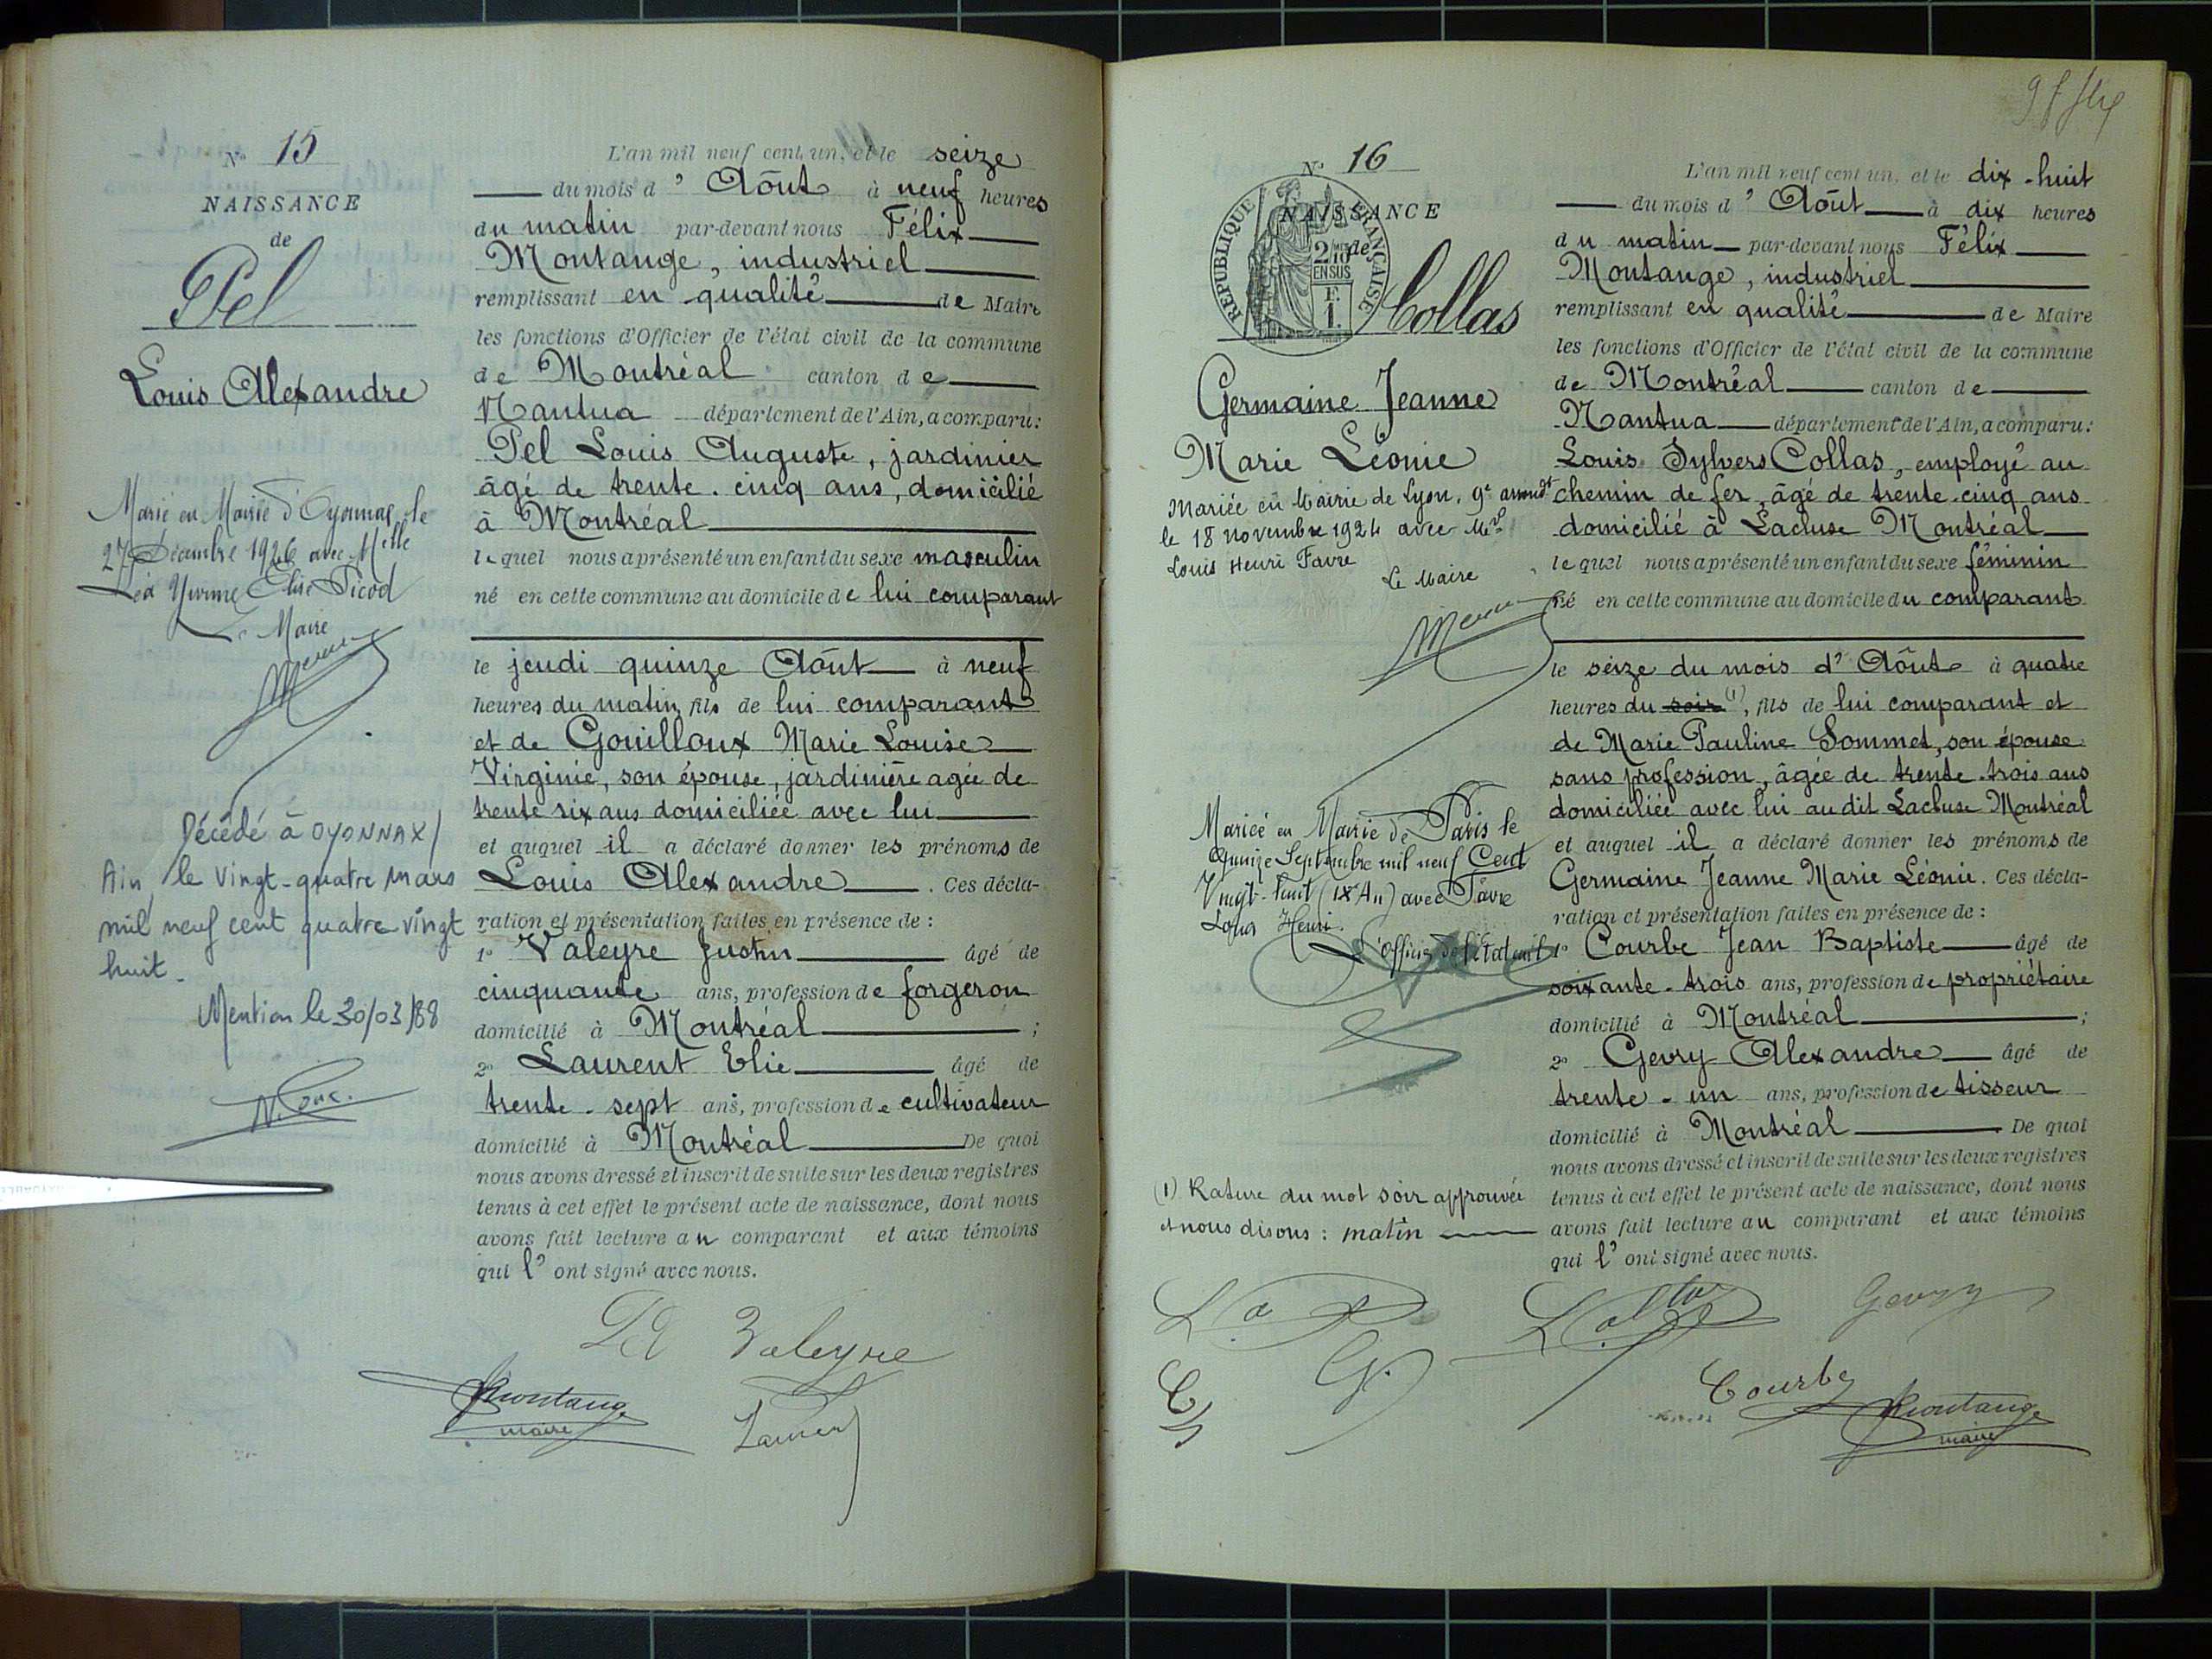 N° 15
NAISSANCE
de
Pel
Louis Alexandre
Marié en Mairie d'Oyonnax le
27 Décembre 1926 avec Melle
Léa Yvonne Elise Picod
Le Maire
Décédé à OYONNAX/
Ain, le vingt-quatre mars
mil neuf cent quatre vingt
huit.
Mention le 30/03/88
L'an mil neuf cent un, et le seize
du mois d'Août à neuf heures
du matin par-devant nous Félix
Montange, industriel
remplissant en qualité de Maire
les fonctions d'Officier de l'état civil de la commune
de Montréal canton de
Nantua département de l'Ain, a comparu:
Pel Louis Auguste, jardinier
âgé de trente-cinq ans, domicilié
à Montréal
lequel nous a présenté un enfant du sexe masculin
né en cette commune au domicile de lui comparant
le jeudi quinze Août à neuf
heures du matin, fils de lui comparant
et de Gouilloux Marie Louise
Virginie, son épouse, jardinière agée de
trente six ans domiciliée avec lui
et auquel il a déclaré donner les prénoms de
Louis Alexandre. Ces décla-
ration et présentation faites en présence de :
1° Valeyre Justin âgé de
cinquante ans, profession de forgeron
domicilié à Montréal ;
2° Laurent Elie âgé de
trente-sept ans, profession de cultivateur
domicilié à Montréal De quoi
nous avons dressé et inscrit de suite sur les deux registres
tenus à cet effet le présent acte de naissance, dont nous
avons fait lecture au comparant et aux témoins
qui l'ont signé avec nous.
Pel Valeyre
Montange
maire
Laurent
N° 16
NAISSANCE
de
REPUBLIQUE FRANÇAISE
2/10
EN SUS
F.
1.
Collas
Germaine Jeanne
Marie Léonie
Mariée en Mairie de Lyon, 9e arrondt
le 18 novembre 1924 avec Mr
Louis Henri Favre
Le Maire
Mariée en Mairie de Paris le
Quinze Septembre mil neuf Cent
Vingt-huit (IXe Arr) avec Favre
Louis Henri.
L'officier de l'état civil
(1) Rature du mot soir approuvée
et nous disons : matin
L'an mil neuf cent un, et le dix-huit
du mois d'Août à dix heures
du matin par-devant nous Félix
Montange, industriel
remplissant en qualité de Maire
les fonctions d'Officier de l'état civil de la commune
de Montréal canton de
Nantua département de l'Ain, a comparu:
Louis Sylvers Collas, employé au
chemin de fer, âgé de trente-cinq ans
domicilié à Lacluse Montréal
lequel nous a présenté un enfant du sexe féminin
né en cette commune au domicile du comparant
le seize du mois d'Août à quatre
heures du soir (1), fils de lui comparant et
de Marie Pauline Sommet, son épouse
sans profession, âgée de trente-trois ans
domiciliée avec lui au dit Lacluse Montréal
et auquel il a déclaré donner les prénoms de
Germaine Jeanne Marie Léonie. Ces décla-
ration et présentation faites en présence de :
1° Courbe Jean Baptiste âgé de
soixante-trois ans, profession de propriétaire
domicilié à Montréal ;
2° Gevry Alexandre âgé de
trente-un ans, profession de tisseur
domicilié à Montréal De quoi
nous avons dressé et inscrit de suite sur les deux registres
tenus à cet effet le présent acte de naissance, dont nous
avons fait lecture au comparant et aux témoins
qui l'ont signé avec nous.
L Collas Gevry
Courbe
Montange
maire